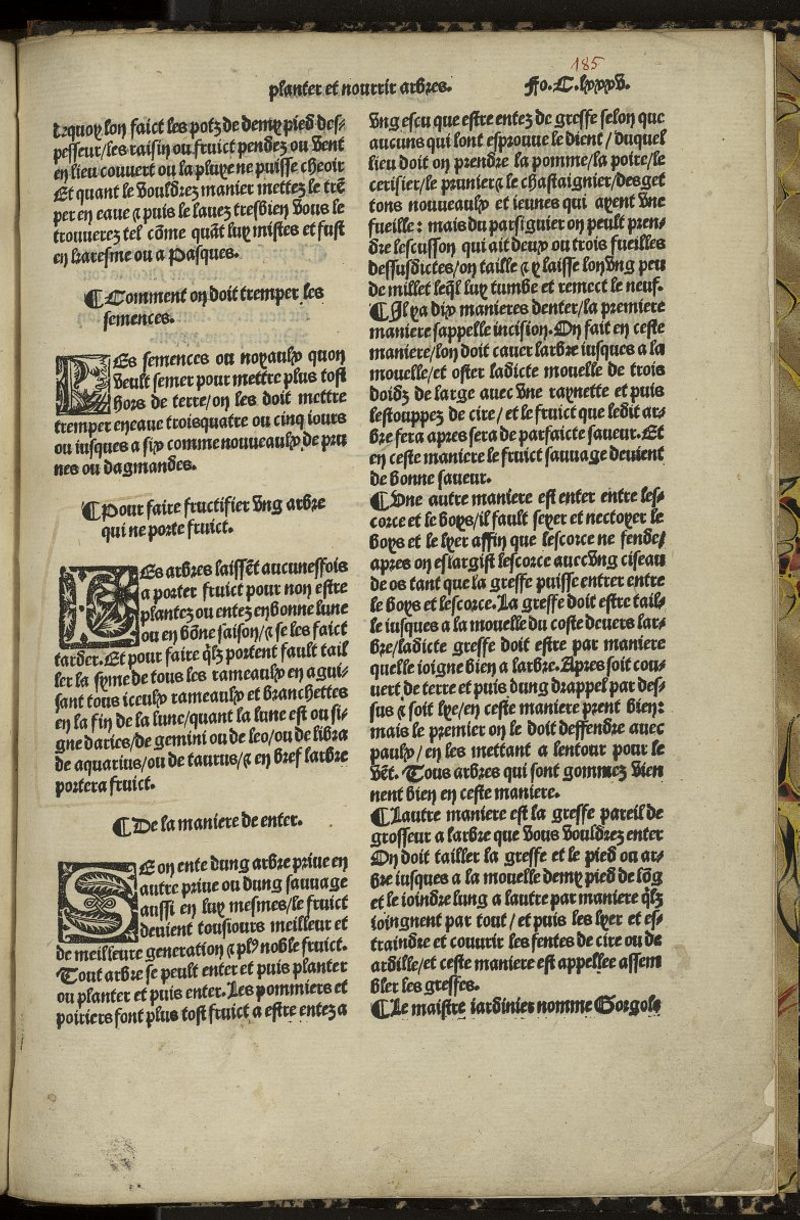 185
planter et nourrir arbres. Fo. C. lxxxv.
lequoy lon faict les potz de demy pied des-
pesseur/les raisin ou fruict pendez ou vent
en lieu couvert ou la pluye ne puisse cheoir
Et quant le vouldrez manier mettez le trē
per en eaue ⁊ puis le lauez tresbien vous le
trouuerez tel cōme quāt luy mistes et fust
en karesme ou a Pasques.
¶ Comment on doit tremper les
semences.
Les semences ou noyaulx quon
veult semer pour mettre plus tost
hors de terre/on les doit mettre
tremper en eaue troisquatre ou cinq iours
ou iusques a six comme nouueaulx de pru
nes ou dagmandes.
¶ Pour faire fructifier vng arbre
qui ne porte fruict.
Les arbres laissēt aucuneffois
a porter fruict pour non estre
plantez ou entez en bonne lune
ou en bōne saison/⁊ se les faict
tarder. Et pour faire q̄lz portent fault tail
ler la syme de tous les rameaulx en agui-
sant tous iceulx rameaulx et branchettes
en la fin de la lune/quant la lune est ou si-
gne daries/de gemini ou de leo/ou de libra
de aquarius/ou de taurus/⁊ en bref larbre
portera fruict.
¶ De la maniere de enter.
Se on ente dung arbre priue en
autre priue ou dung sauuage
aussi en luy mesmes/le fruict
deuient tousiours meilleur et
de meilleure generation ⁊ plꝰ noble fruict.
Tout arbre se peult enter et puis planter
ou planter et puis enter. Les pommiers et
poiriers font plus tost fruict a estre entez a
vng escu que estre entez de greffe selon que
aucuns qui lont esprouue le dient/duquel
lieu doit on prendre la pomme/la poire/le
cerisier/le prunier ⁊ le chastaignier/des get
tons nouueaulx et ieunes qui ayent vne
fueille: mais du parsiguier on peult pren-
dre lescusson qui ait deux ou trois fueilles
dessusdictes/on taille ⁊ y laisse lon vng peu
de millet leq̄l luy tumbe et remect le neuf.
¶ Il ya dix manieres denter/la premiere
maniere sappelle incision. On fait en ceste
maniere/lon doit cauer larbre iusques a la
mouelle/et oster ladicte mouelle de trois
doidz de large auec vne raynette et puis
lestouppez de cire/et le fruict que ledit ar-
bre fera apres sera de parfaicte saueur. Et
en ceste maniere le fruict sauuage deuient
de bonne saueur.
¶ Vne autre maniere est enter entre les-
corce et le boys/il fault seyer et nectoyer le
boys et le lyer affin que lescorce ne fende/
apres on eslargist lescorce auec vng ciseau
de os tant que la greffe puisse entrer entre
le boys et lescorce. La greffe doit estre tail-
le iusques a la mouelle du coste deuers lar-
bre/ladicte greffe doit estre par maniere
quelle ioigne bien a larbre. Apres soit cou-
uert de terre et puis dung drappel par des-
sus ⁊ soit lye/en ceste maniere prent bien:
mais le premier on le doit deffendre auec
paulx/en les mettant a lentour pour le
vēt. Tous arbres qui sont gommez vien
nent bien en ceste maniere.
¶ Lautre maniere est la greffe pareil de
grosseur a larbre que vous vouldrez enter
On doit tailler la greffe et le pied ou ar-
bre iusques a la mouelle demy pied de lōg
et le ioindre lung a lautre par maniere q̄lz
ioingnent par tout/et puis les lyer et es-
traindre et couurir les fentes de cire ou de
ardille/et ceste maniere est appellee assem
bler les greffes.
¶ Le maistre iardinier nomme Gorgole